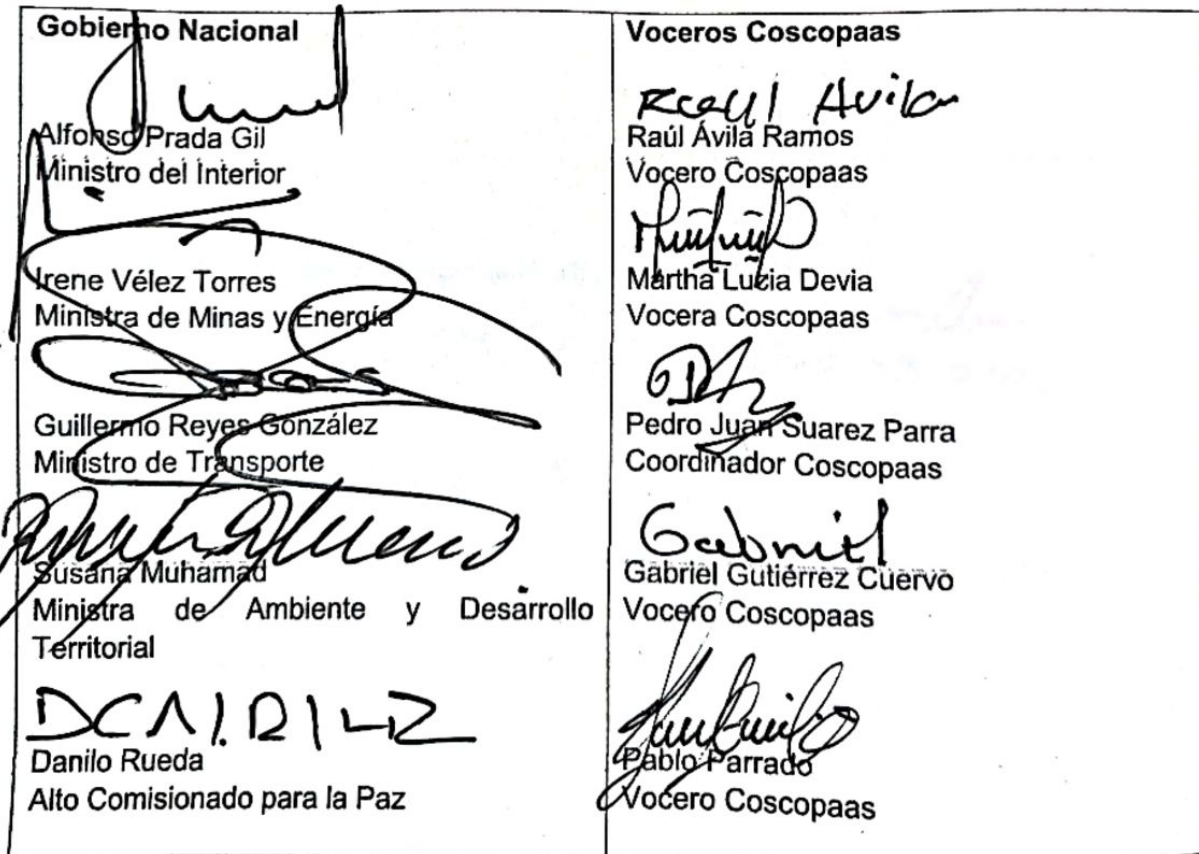 Gobierno Nacional
Alfonso Prada Gil
Ministro del Interior
Irene Vélez Torres
Ministra de Minas y Energía
Guillermo Reyes González
Ministro de Transporte
Susana Muhamad
Ministra de Ambiente y Desarrollo
Territorial
Danilo Rueda
Alto Comisionado para la Paz
Voceros Coscopaas
Raul Avila
Raúl Ávila Ramos
Vocero Coscopaas
Martha Lucia Devia
Vocera Coscopaas
Pedro Juan Suarez Parra
Coordinador Coscopaas
Gabriel
Gabriel Gutiérrez Cuervo
Vocero Coscopaas
Pablo Parrado
Vocero Coscopaas